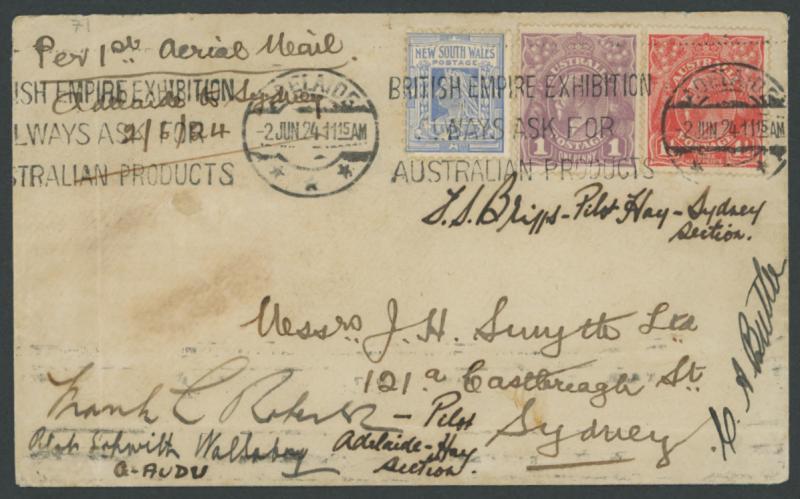 Per 1st Aerial Mail.
Adelaide to Sydney
2/6/24
ISH EMPIRE EXHIBITION
LWAYS ASK FOR
STRALIAN PRODUCTS
ADELAIDE
2 JUN 24·1115AM
NEW SOUTH WALES
POSTAGE
AUSTRALIA
1 1
POSTAGE
AUSTRALIA
BRITISH EMPIRE EXHIBITION
WAYS ASK FOR
AUSTRALIAN PRODUCTS
2 JUN 24·1115AM
Briggs - Pilot Hay - Sydney
section.
Messrs J. H. Smyth Ltd
121a Castlereagh St.
Sydney
Frank Roberts - Pilot
Adelaide - Hay
section.
Pilot Wallaby
G-AUDU
C A Butler
71